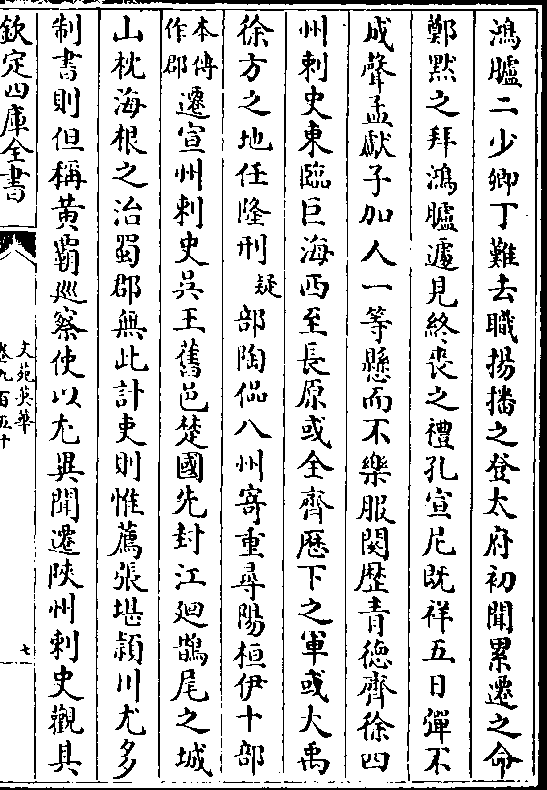 鴻臚二少卿丁難去職揚播之登太府初聞累遷之命
鄭黙之拜鴻臚遽見終喪之禮孔宣尼既祥五日彈不
成聲孟獻子加人一等懸而不樂服闋歷青德齊徐四
州刺史東臨巨海西至長原或全齊厯下之軍或大禹
徐方之地任隆刑疑部陶侃八州寄重尋陽桓伊十部
本傳作郡遷宣州刺史吳王舊邑楚國先封江廻鵲尾之城
山枕海根之治蜀郡無此計吏則惟薦張堪潁川尤多
制書則但稱黄霸廵察使以尤異聞遷陜州刺史觀具
欽定四庫全書
文苑英華
卷九百五十
七